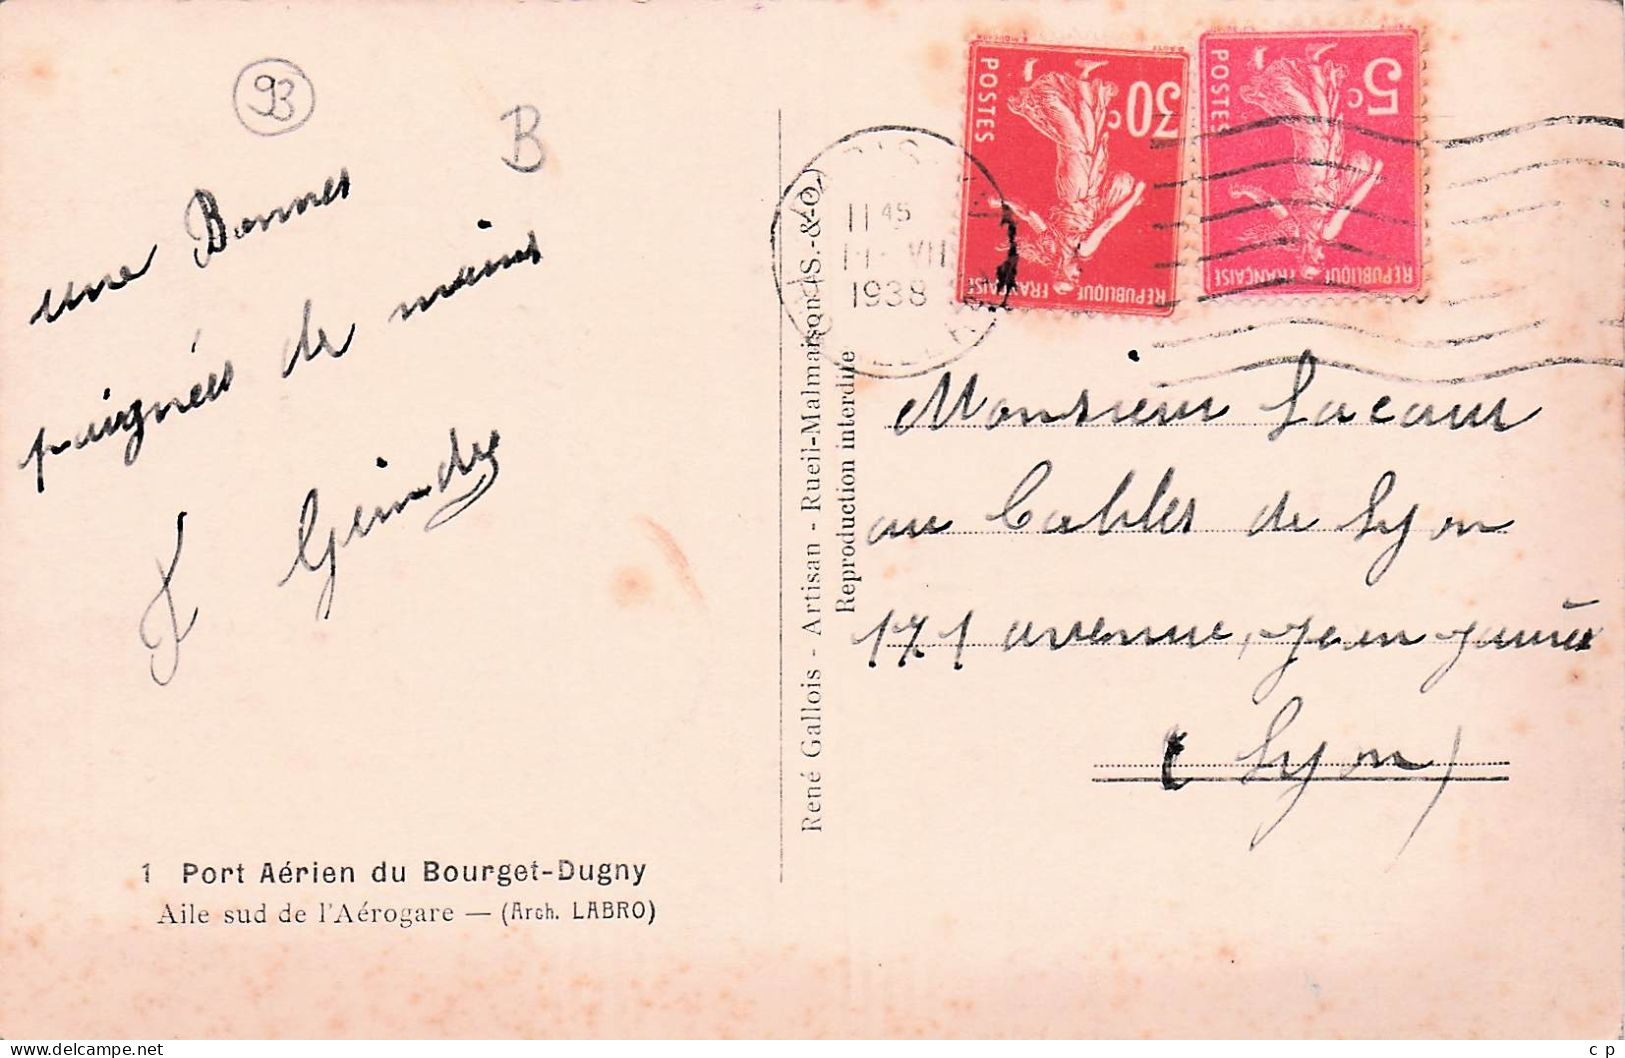 93
B
une Bonnes
poignées de mains
J Geindre
1 Port Aérien du Bourget-Dugny
Aile sud de l'Aérogare — (Arch. LABRO)
René Gallois - Artisan - Rueil-Malmaison (S.-&-O.)
Reproduction interdite
11 45
VII
1938
POSTES
30c
REPUBLIQUE FRANÇAISE
POSTES
5c
REPUBLIQUE FRANÇAISE
Monsieur Lacour
au Cables de Lyon
171 avenue, Jean Jaurès
(Lyon)
www.delcampe.net
c p